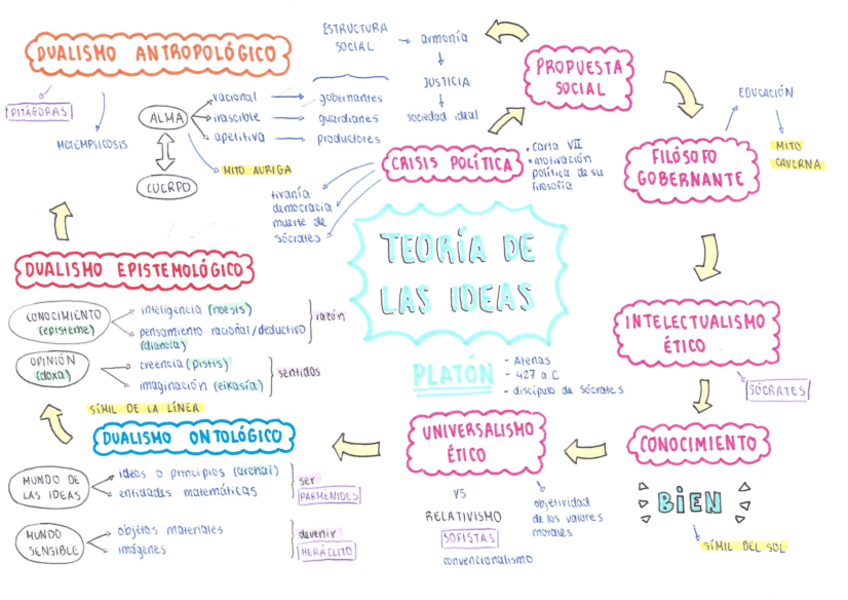 DUALISMO ANTROPOLÓGICO
PITÁGORAS
METEMPSICOSIS
ALMA
CUERPO
racional
irascible
apetitiva
MITO AURIGA
ESTRUCTURA
SOCIAL
gobernantes
guardianes
productores
armonía
JUSTICIA
sociedad ideal
PROPUESTA
SOCIAL
CRISIS POLÍTICA
• carta VII
• motivación
política de su
filosofía
tiranía
democracia
muerte de
sócrates
EDUCACIÓN
MITO
CAVERNA
FILÓSOFO
GOBERNANTE
TEORÍA DE
LAS IDEAS
PLATÓN
- Atenas
- 427 a.C
- discípulo de sócrates
INTELECTUALISMO
ÉTICO
SÓCRATES
CONOCIMIENTO
BIEN
SÍMIL DEL SOL
UNIVERSALISMO
ÉTICO
VS
RELATIVISMO
SOFISTAS
convencionalismo
objetividad
de los valores
morales
DUALISMO ONTOLÓGICO
MUNDO DE
LAS IDEAS
ideas o principios (archai)
entidades matemáticas
ser
PARMÉNIDES
MUNDO
SENSIBLE
objetos materiales
imágenes
devenir
HERÁCLITO
DUALISMO EPISTEMOLÓGICO
CONOCIMIENTO
(episteme)
inteligencia (noesis)
pensamiento racional/deductivo
(dianoia)
razón
OPINIÓN
(doxa)
creencia (pistis)
imaginación (eikasía)
sentidos
SÍMIL DE LA LÍNEA